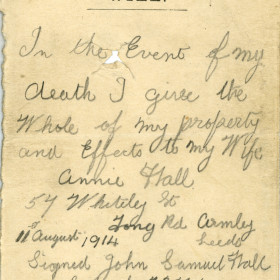 In the Event of my
death I give the
Whole of my property
and Effects to my Wife
Annie Hall
57 Whiteley St
Tong Rd Armley
Leeds
11 August, 1914
Signed John Samuel Hall